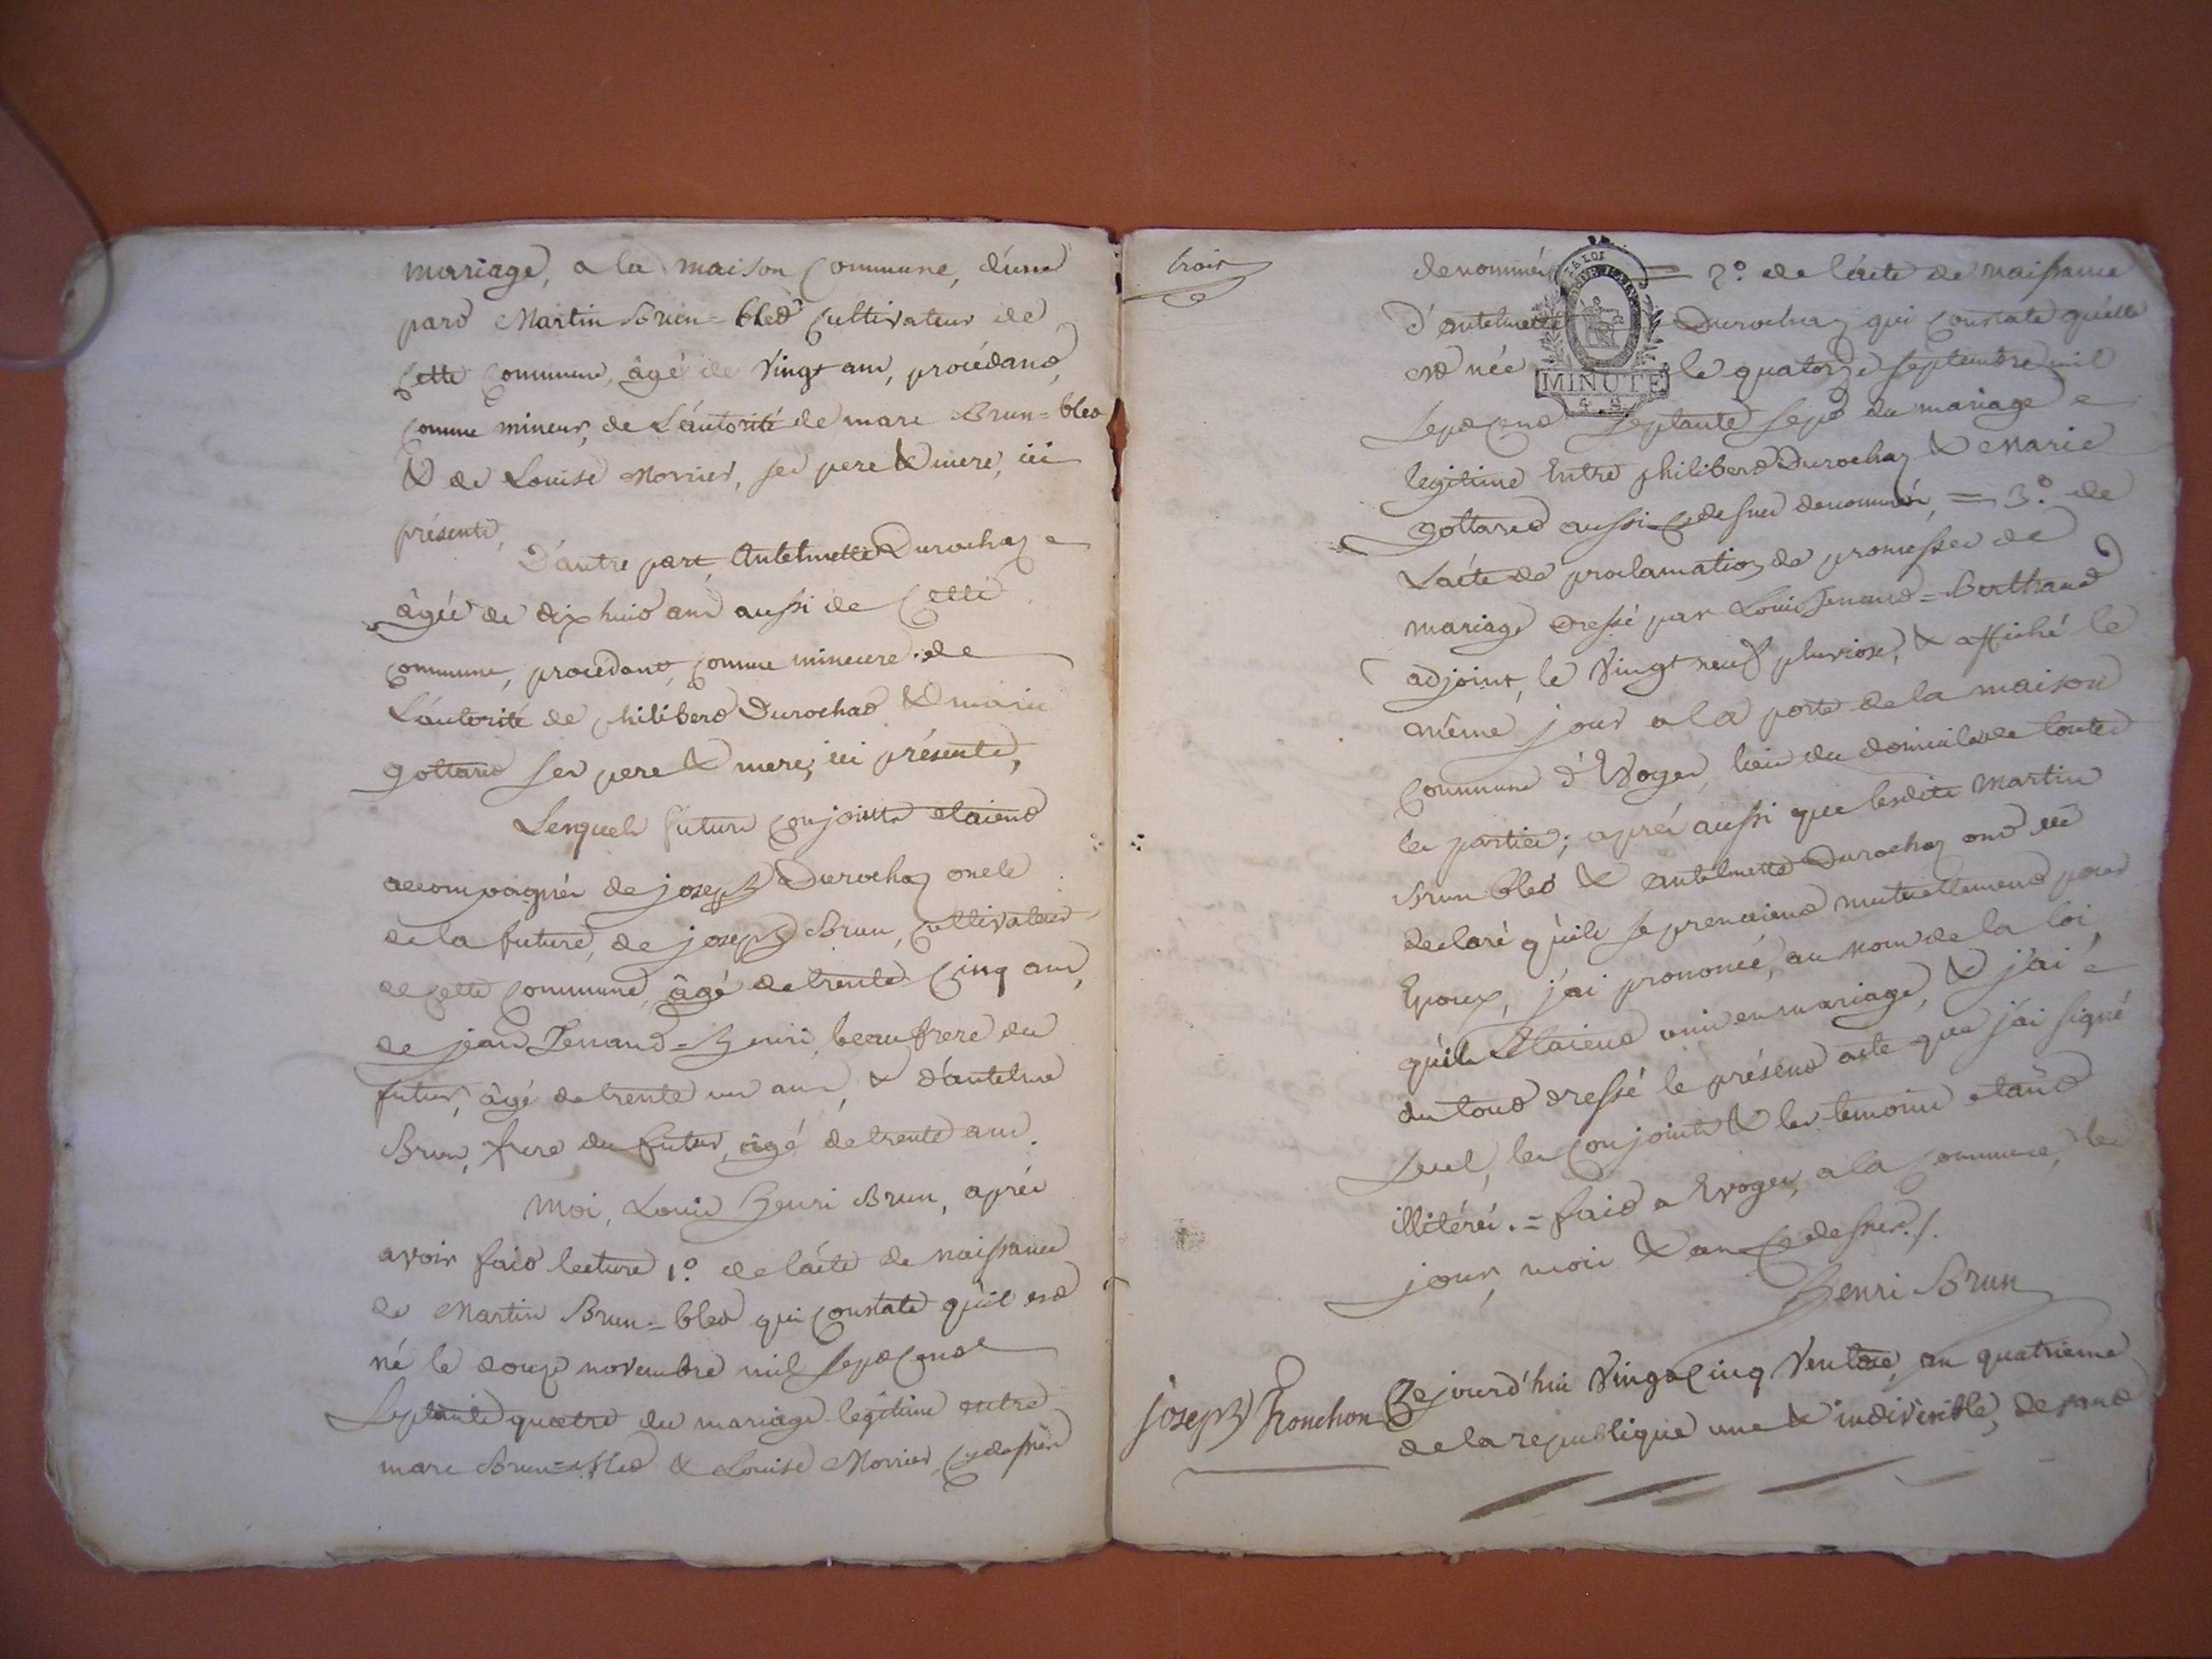 mariage, a la maison Commune, d'une
part Martin Brun=blet Cultivateur de
Cette Commune, âgé de Vingt ans, procédant,
Comme mineur, de L'autorité de marc Brun=blet
& de Louise Morrier, ses pere & mere, ici
présents,
D'autre part, Antelmette Durochat
âgée de dix huit ans aussi de Cette
Commune, procédant, Comme mineure de
L'autorité de philibert Durochat & marie
gottard ses pere & mere, ici présents,
Lesquels futurs Conjoints etaient
accompagnés de joseph Durochat oncle
de la future, de joseph Brun, Cultivateur
de Cette Commune, âgé de trente Cinq ans,
de jean Henri, beaufrere du
futur, âgé de trente un ans, & d'antelme
Brun, frere du futur, âgé de trente ans.
Moi, Louis Henri Brun, après
avoir fait lecture 1.° de l'acte de naissance
de Martin Brun=blet qui Constate qu'il est
né le douze novembre mil Sept Cent
Septante quatre du mariage legitime entre
marc Brun=blet & Louise Morrier, Cy dessus
trois
denommés = 2.° de l'acte de naissance
D'antelmette Durochat qui Constate qu'elle
est née le quatorze septembre mil
Sept Cent Septante Sept du mariage
legitime Entre philibert Durochat & Marie
gottard aussi Cy dessus denommés, = 3.° de
L'acte de proclamation de promesses de
mariage dressé par Louis =Berthand
adjoint, le Vingt neuf pluviose, & affiché le
même jour a la porte de la maison
Commune d'Evoges, lieu du domicile de toutes
les parties; après aussi que lesdits Martin
Brun blet & antelmette Durochat ont eû
declaré qu'ils se prenaient mutuellement pour
Epoux, j'ai prononcé, au nom de la loi,
qu'ils Etaient unis en mariage, & j'ai
du tout dressé le présent acte que j'ai signé
Seul, les Conjoints & les temoins etant
illitérés. = fait a Evoges, a la Commune, les
jour, mois & an Cy dessus./.
Henri Brun
LA LOI
MINUTE
joseph Tronchon
Cejourd'hui Vingt Cinq Ventose, an quatrieme
de la republique une & indivisible, devant